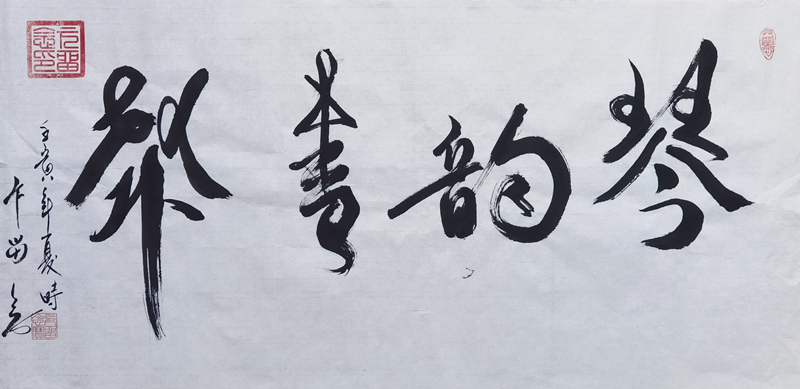 琴韵書聲
壬寅年夏時